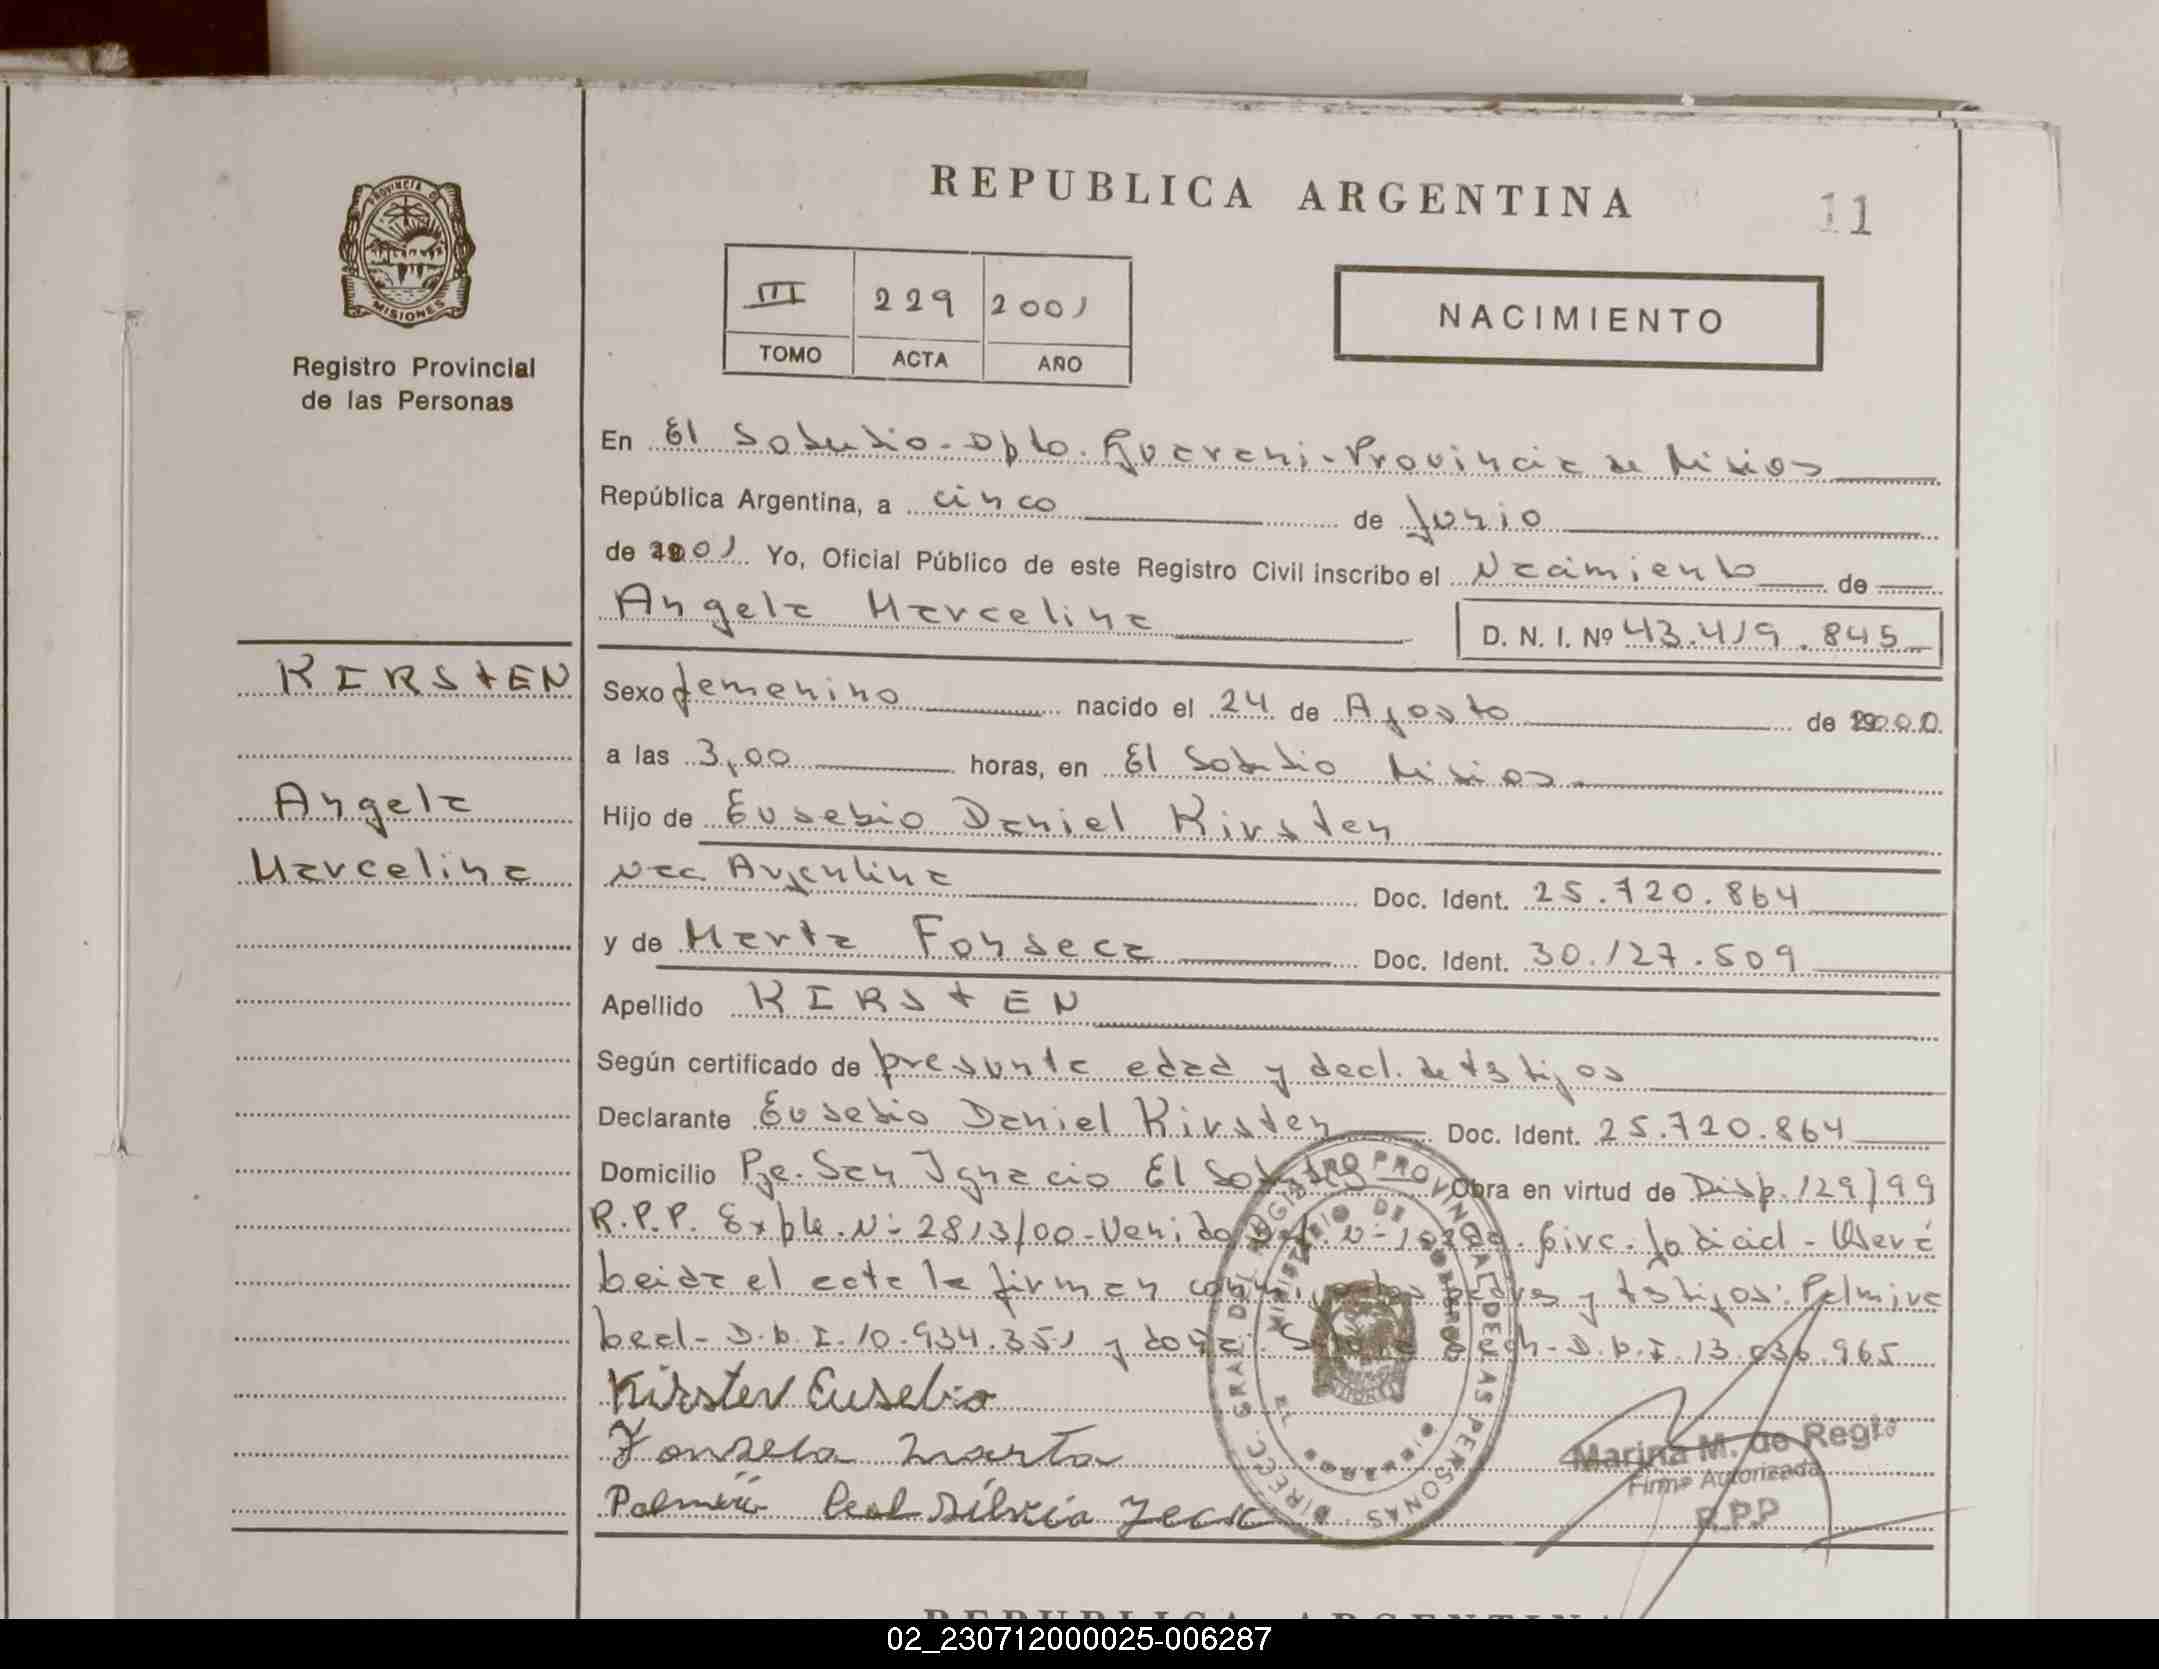 REPUBLICA ARGENTINA
11
PROVINCIA DE MISIONES
Registro Provincial
de las Personas
III 229 2001
TOMO ACTA AÑO
NACIMIENTO
En El Soberbio - Dpto. Guarani - Provincia de Misiones
República Argentina, a cinco de Junio
de 2001 Yo, Oficial Público de este Registro Civil inscribo el Nacimiento de
Angela Marcelina
D. N. I. Nº 43.419.845
KIRSTEN
Angela
Marcelina
Sexo femenino nacido el 24 de Agosto de 2000
a las 3,00 horas, en El Soberbio Misiones
Hijo de Eusebio Daniel Kirsten
Nac Argentina Doc. Ident. 25.720.864
y de Marta Fonseca Doc. Ident. 30.127.509
Apellido KIRSTEN
Según certificado de presunta edad y decl. de testigos
Declarante Eusebio Daniel Kirsten Doc. Ident. 25.720.864
Domicilio Pje. San Ignacio El Soberbio Obra en virtud de Disp. 129/99
R.P.P. Expte. Nº 2813/00 - Venido Def. Nº Circ. Judicial - Oberá
Leida el acta la firman conmigo los padres y testigos: Palmira
Leal - D.N.I. 10.934.351 y doña: D.N.I. 13.036.965
Kirsten Eusebio
Fonseca Marta
Palmira Leal Silvia
DIRECC. GRAL. DEL REGISTRO PROVINCIAL DE LAS PERSONAS
MINISTERIO DE GOBIERNO
Marina M. de Regio
Firma Autorizada
R.P.P
REPUBLICA ARGENTINA
02_230712000025-006287